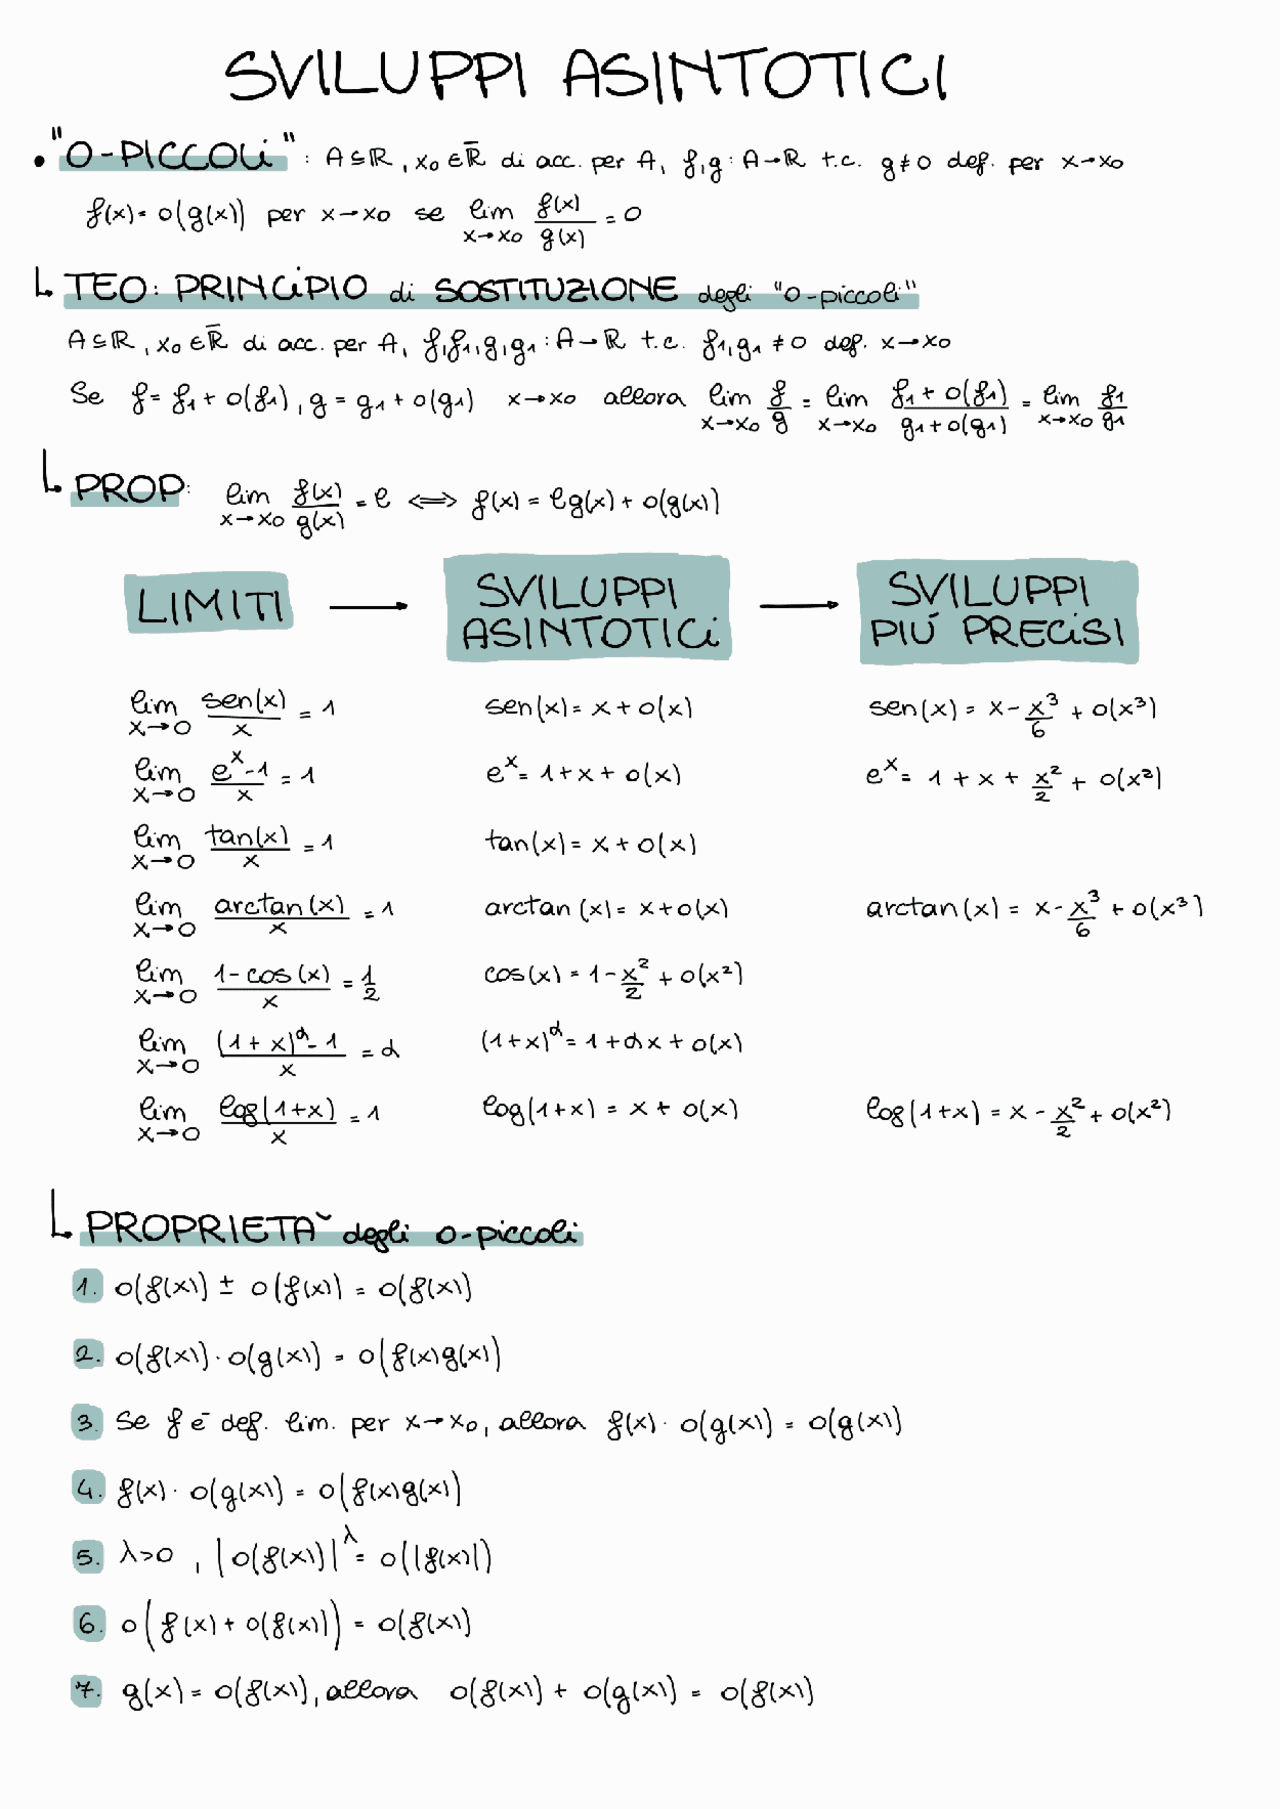 SVILUPPI ASINTOTICI
• "O-PICCOLI" : A ⊆ ℝ, x₀ ∈ ℝ̄ di acc. per A, f,g : A→ℝ t.c. g≠0 def. per x→x₀
f(x) = o(g(x)) per x→x₀ se lim x→x₀ f(x)/g(x) = 0
↳ TEO: PRINCIPIO di SOSTITUZIONE degli "o-piccoli"
A ⊆ ℝ, x₀ ∈ ℝ̄ di acc. per A, f,f₁,g,g₁ : A→ℝ t.c. f₁,g₁ ≠ 0 def. x→x₀
Se f = f₁ + o(f₁), g = g₁ + o(g₁) x→x₀ allora lim x→x₀ f/g = lim x→x₀ (f₁ + o(f₁))/(g₁ + o(g₁)) = lim x→x₀ f₁/g₁
↳ PROP: lim x→x₀ f(x)/g(x) = l ⟺ f(x) = lg(x) + o(g(x))
LIMITI → SVILUPPI ASINTOTICI → SVILUPPI PIÚ PRECISI
lim x→0 sen(x)/x = 1 sen(x) = x + o(x) sen(x) = x - x³/6 + o(x³)
lim x→0 (eˣ-1)/x = 1 eˣ = 1 + x + o(x) eˣ = 1 + x + x²/2 + o(x²)
lim x→0 tan(x)/x = 1 tan(x) = x + o(x)
lim x→0 arctan(x)/x = 1 arctan(x) = x + o(x) arctan(x) = x - x³/6 + o(x³)
lim x→0 (1-cos(x))/x = 1/2 cos(x) = 1 - x²/2 + o(x²)
lim x→0 ((1+x)^α - 1)/x = α (1+x)^α = 1 + αx + o(x)
lim x→0 log(1+x)/x = 1 log(1+x) = x + o(x) log(1+x) = x - x²/2 + o(x²)
↳ PROPRIETA˘ degli o-piccoli
1. o(f(x)) ± o(f(x)) = o(f(x))
2. o(f(x)) · o(g(x)) = o(f(x)g(x))
3. Se f è def. lim. per x→x₀, allora f(x) · o(g(x)) = o(g(x))
4. f(x) · o(g(x)) = o(f(x)g(x))
5. λ>0 , |o(f(x))|^λ = o(|f(x)|)
6. o(f(x) + o(f(x))) = o(f(x))
7. g(x) = o(f(x)), allora o(f(x)) + o(g(x)) = o(f(x))